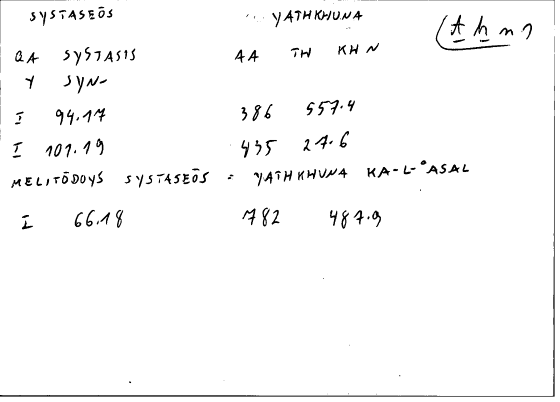 SYSTASEŌS YATHKHUNA
QA SYSTASIS AA TH KH N
Y SYN-
I 94.17 386 557.4
I 101.19 435 27.6
MELITŌDOYS SYSTASEŌS = YATHKHUNA KA-L-ʿASAL
I 66.18 782 487.9